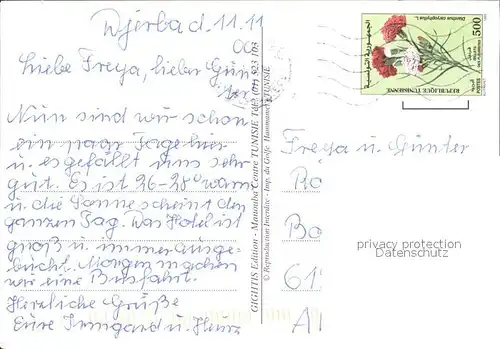 Djerba d. 11.11
00
Liebe Freya, lieber Gün
ter
Nun sind wir schon
ein paar Tage hier
u. es gefällt uns sehr
gut. Es ist 26-28° warm
u. die Sonne scheint den
ganzen Tag. Das Hotel ist
groß u. immer ausge-
bucht. Morgen machen
wir eine Busfahrt.
Herzliche Grüße
Eure Irmgard u. Heinz
GIGHTIS Edition - Manouba Centre TUNISIE Tél: (01) 523 103
© Reproduction Interdite - Imp. du Golfe - Hammamet - TUNISIE
Dianthus caryophyllus L.
500
REPUBLIQUE TUNISIENNE
الجمهورية التونسية
POSTES
Freya u. Günter
Ro
Bo
61
A
privacy protection
Datenschutz